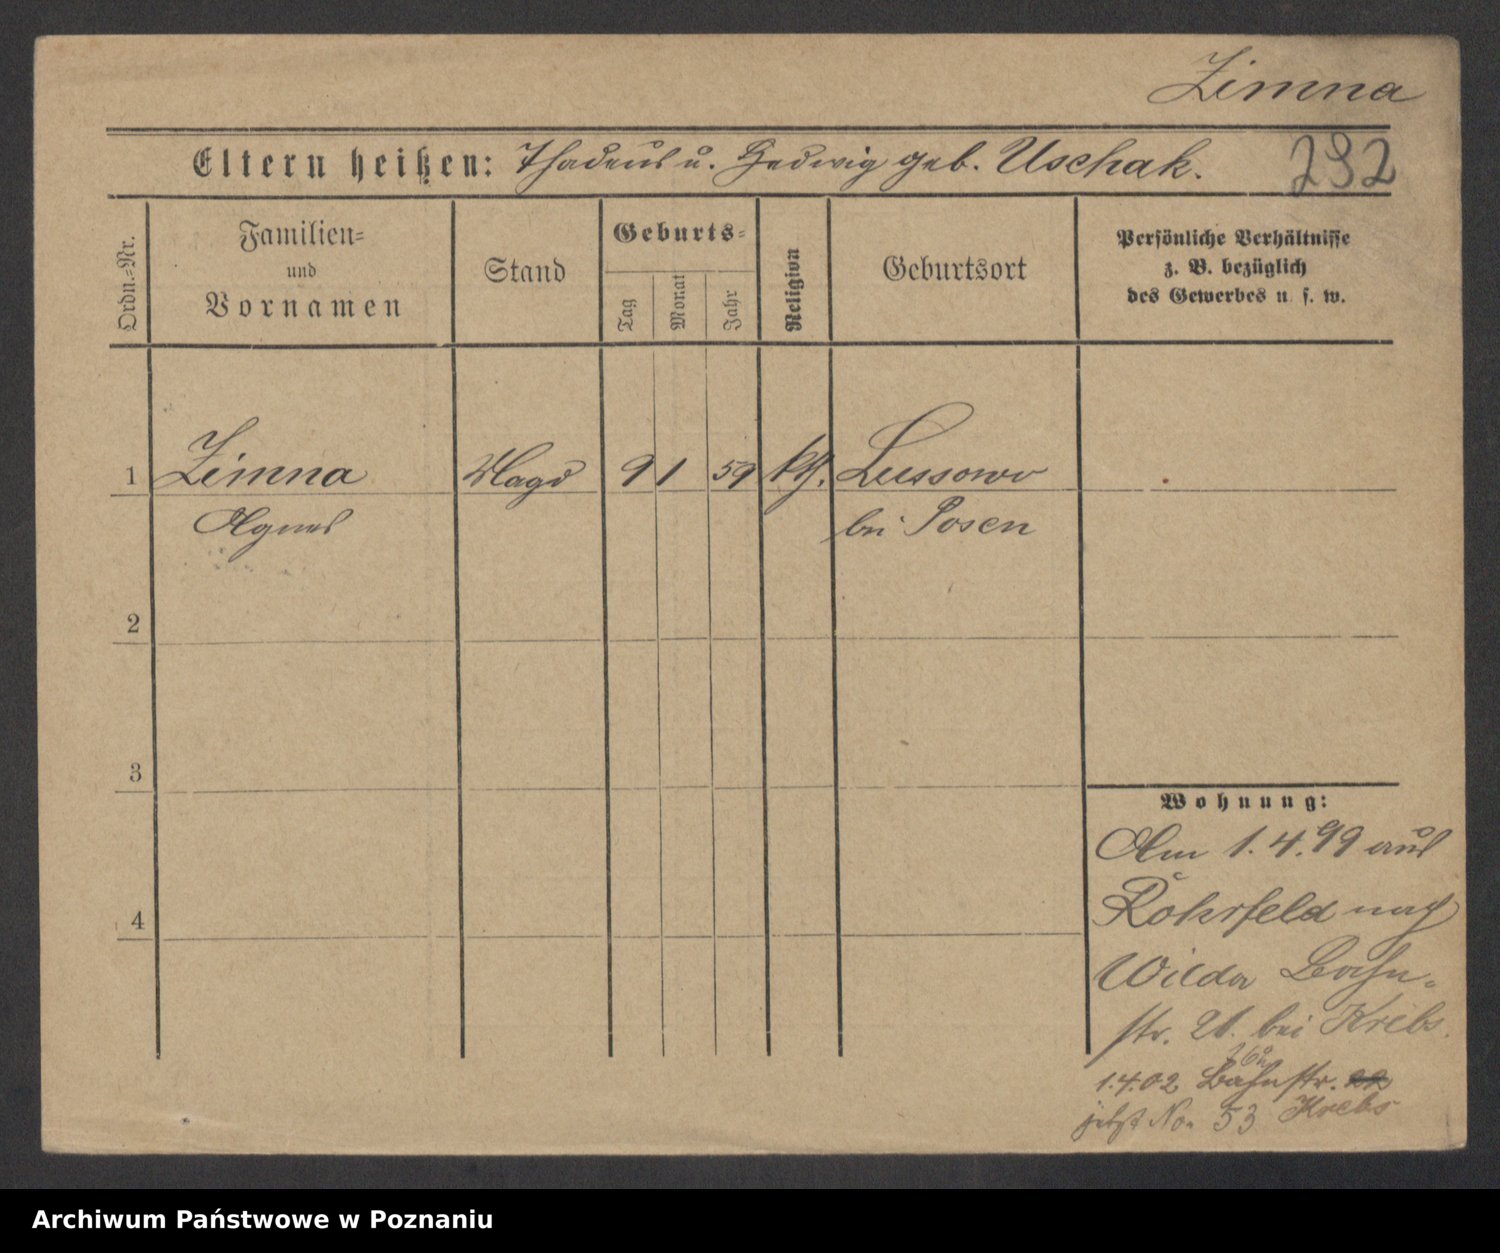 Zimna
Eltern heißen: Thadeus u. Hedwig geb. Uschak.
292
Ordn.=Nr.
Familien=
und
Vornamen
Stand
Geburts=
Tag
Monat
Jahr
Religion
Geburtsort
Persönliche Verhältnisse
z. B. bezüglich
des Gewerbes u. s. w.
1 Zimna Magd 9 1 59 kth. Lussowo
Agnes bei Posen
2
3
4
Wohnung:
Am 1.4.99 aus
Rohrfeld nach
Wilda Bahn-
str. 21. bei Krebs.
1.4.02 Bahnstr.
Krebs
jetzt No. 53
Archiwum Państwowe w Poznaniu